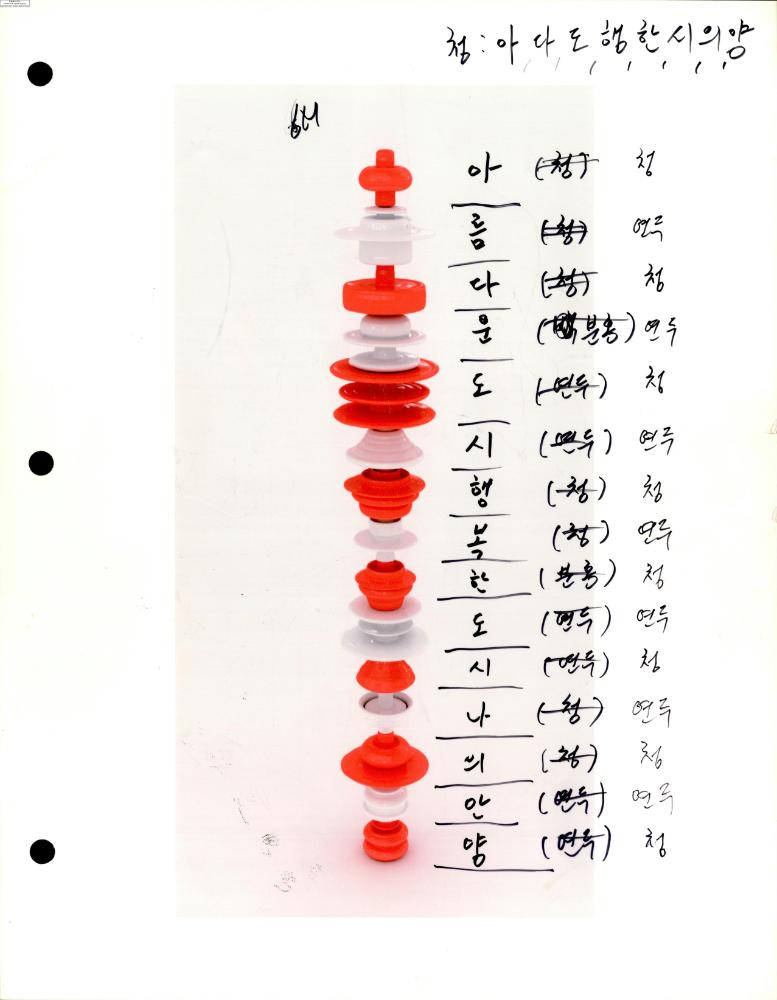 청 : 아 다 도 행 한 시 의 양
아 (청) 청
름 (청) 연두
다 (청) 청
운 (분홍) 연두
도 (연두) 청
시 (연두) 연두
행 (청) 청
복 (청) 연두
한 (분홍) 청
도 (연두) 연두
시 (연두) 청
나 (청) 연두
의 (청) 청
안 (연두) 연두
양 (연두) 청